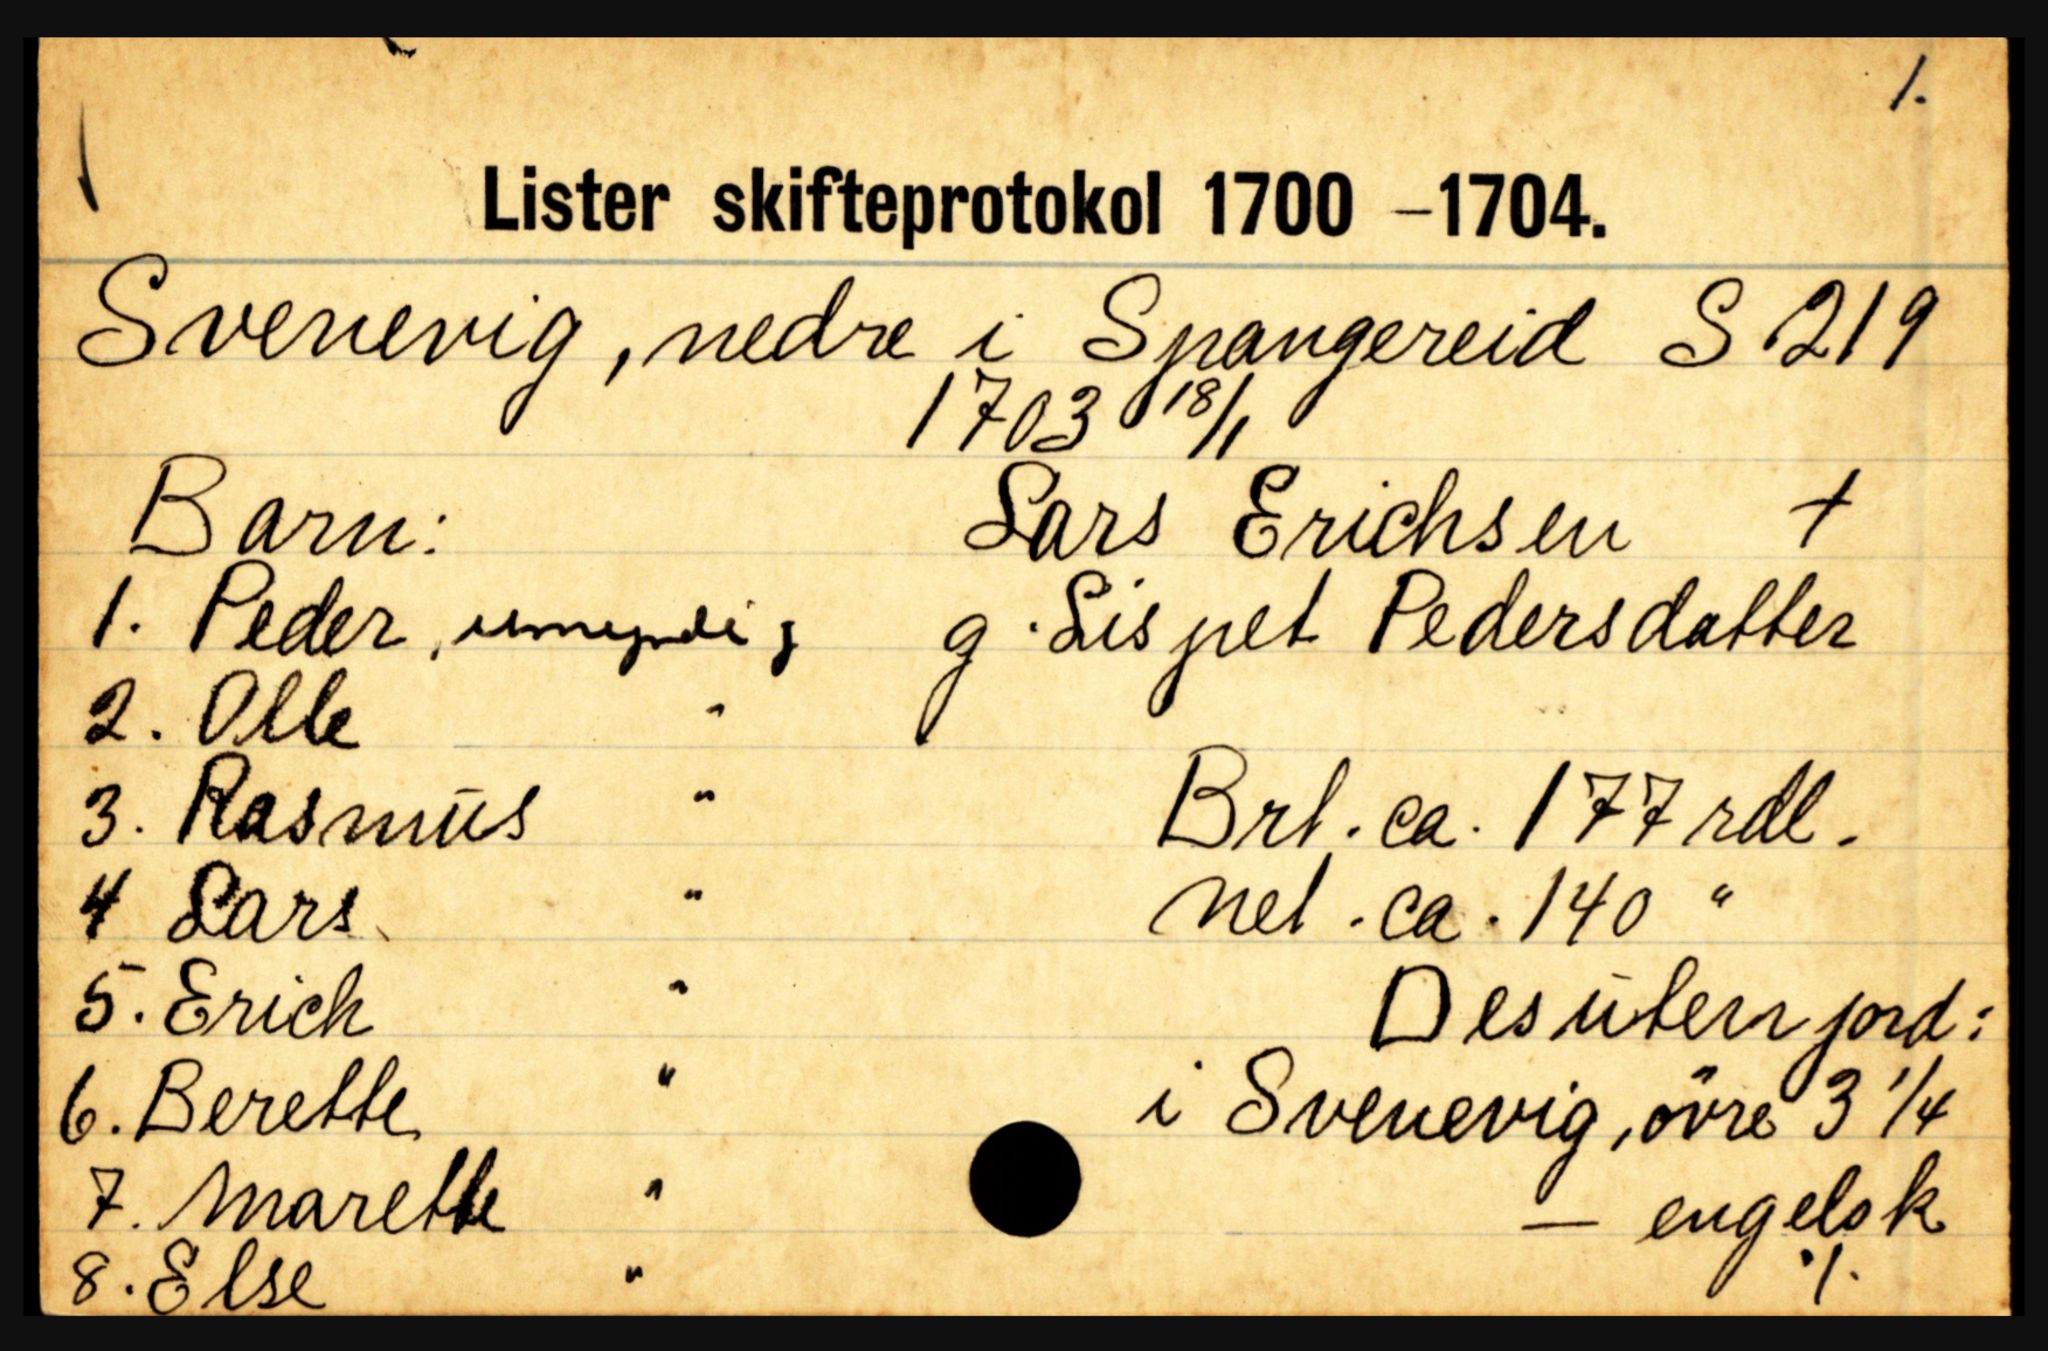 1.
Lister skifteprotokol 1700 – 1704.
Svenevig, nedre i Spangereid S 219
1703 18/1
Barn: Lars Erichsen +
1. Peder, umyndig g. Lispet Pedersdatter
2. Olle "
3. Rasmus " Brt. ca. 177 rdl.
4 Lars " Net. ca. 140 "
5. Erich " Desuten jord:
6. Berette " i Svenevig, övre 3 1/4
7. Marette " — engelsk
8. Else " ./.